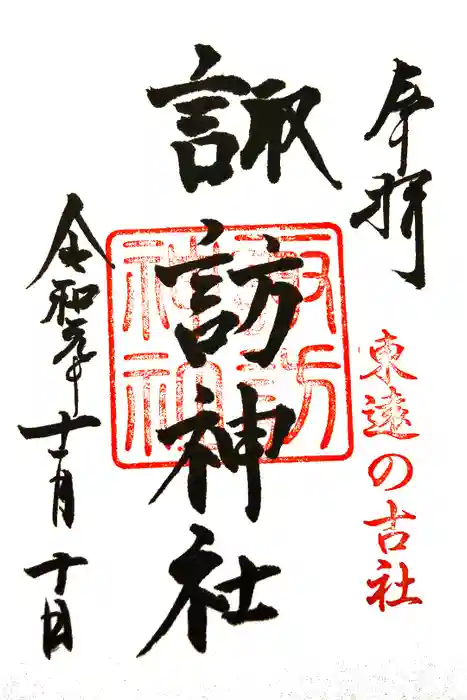 奉拝
東遠の古社
諏訪神社
諏訪
神社
令和元年十一月十日